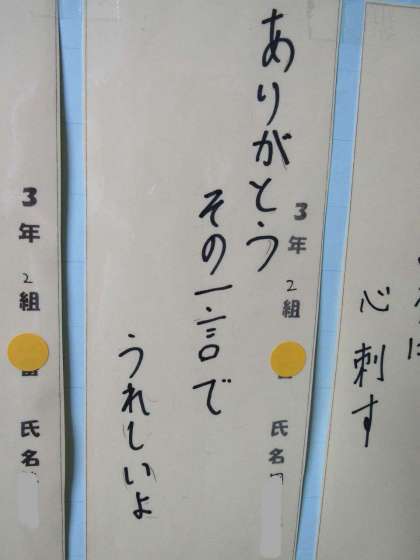 心刺す
3年 2組 氏名
ありがとう
その一言で
うれしいよ
3年 2組 氏名